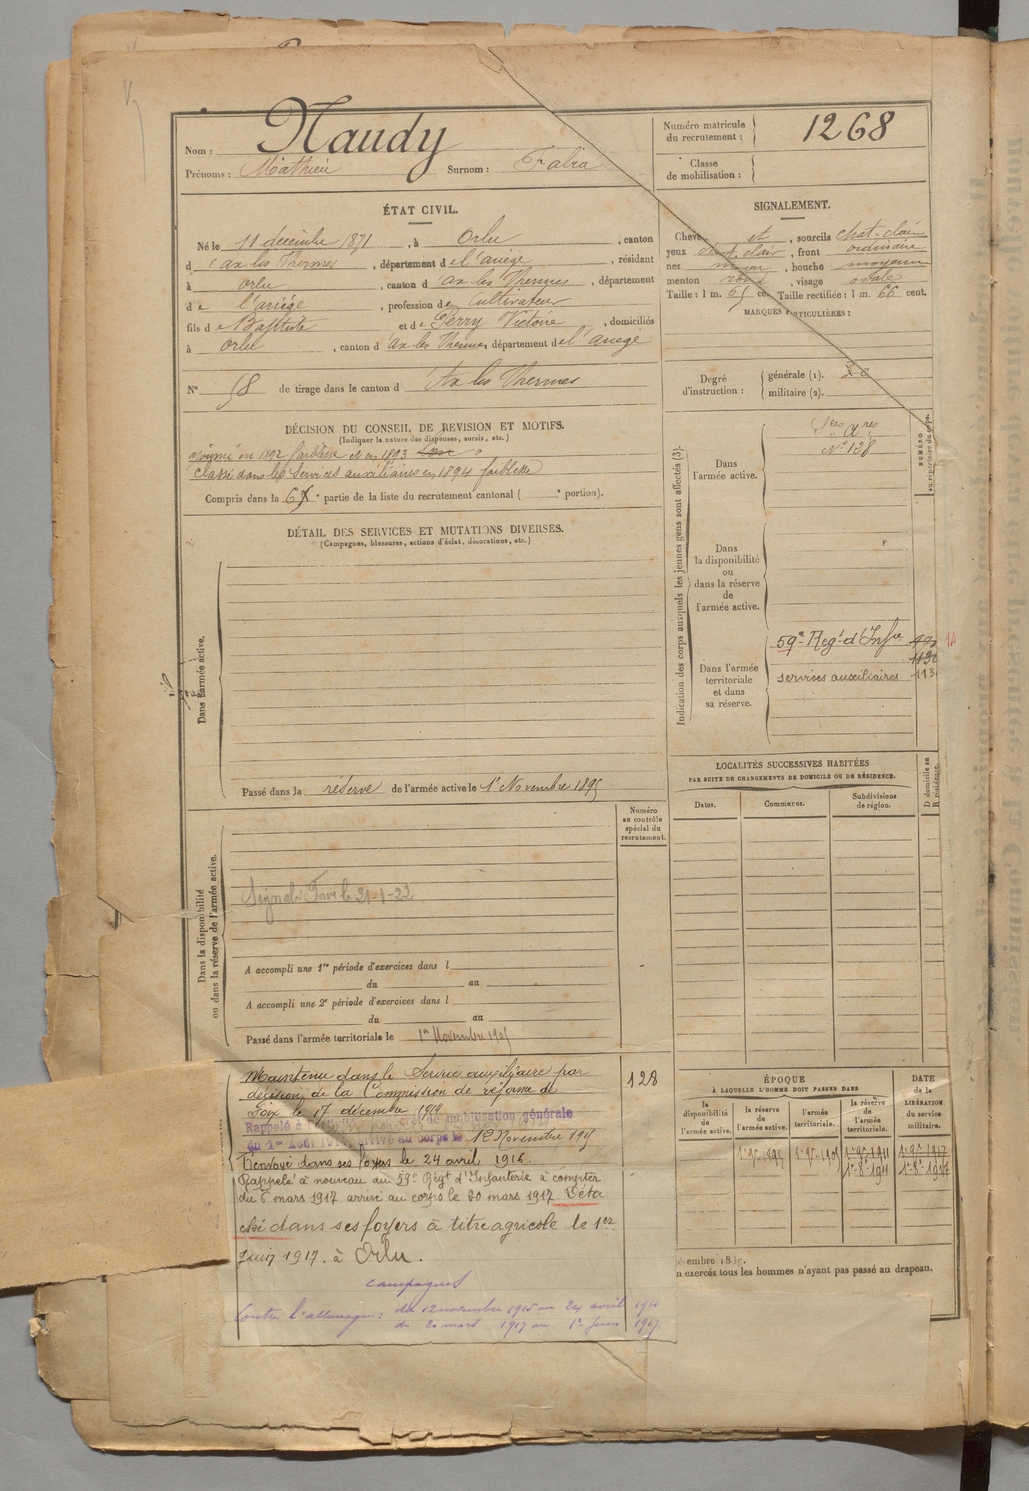 Nom : Naudy
Prénoms : Mathieu Surnom :
Numéro matricule du recrutement : 1268
Classe de mobilisation :
ÉTAT CIVIL.
Né le 11 décembre 1871, à Orlu, canton
d'ax les Thermes, département de l'ariège, résidant
à orlu, canton d'ax les Thermes, département
de l'ariége, profession de Cultivateur
fils de Baptiste et de Perry Victoire, domiciliés
à orlu, canton d'ax les Thermes département de l'ariege
N° 58 de tirage dans le canton d'Ax les Thermes
SIGNALEMENT.
Cheveux et, sourcils chat-clair
yeux chat. clair, front ordinaire
nez moyen, bouche moyenne
menton rond, visage ovale
Taille : 1 m. 65 cent. Taille rectifiée : 1 m. 66 cent.
MARQUES PARTICULIÈRES :
Degré d'instruction : générale (1).
militaire (2).
DÉCISION DU CONSEIL DE REVISION ET MOTIFS.
(Indiquer la nature des dispenses, sursis, etc.)
ajourné en 1892 faiblesse et en 1893
Classé dans les Services auxiliaires en 1894 faiblesse
Compris dans la 6e partie de la liste du recrutement cantonal ( e portion).
DÉTAIL DES SERVICES ET MUTATIONS DIVERSES.
(Campagnes, blessures, actions d'éclat, décorations, etc.)
Dans l'armée active.
Passé dans la réserve de l'armée active le 1er Novembre 1895
Indication des corps auxquels les jeunes gens sont affectés (3).
NUMÉRO au répertoire du corps.
Dans l'armée active.
Sces Ares
N° 128
Dans la disponibilité ou dans la réserve de l'armée active.
Dans l'armée territoriale et dans sa réserve.
59e Regt d'Infie
services auxiliaires 113
LOCALITÉS SUCCESSIVES HABITÉES
PAR SUITE DE CHANGEMENTS DE DOMICILE OU DE RÉSIDENCE.
Dates. Communes. Subdivisions de région. D domicile ou R résidence.
Numéro au contrôle spécial du recrutement.
Dans la disponibilité ou dans la réserve de l'armée active.
Signalé Foix le 21-1-22
A accompli une 1re période d'exercices dans l
du au
A accompli une 2e période d'exercices dans l
du au
Passé dans l'armée territoriale le 1er Novembre 1905
Maintenu dans le Service auxiliaire par
décision de la Commission de réforme de
Foix le 17 décembre 1914
128
Rappelé à l'activité décret de mobilisation générale
du 1er Août 1914, arrivé au corps le 12 Novembre 1915
Renvoyé dans ses foyers le 24 avril 1916.
Rappelé à nouveau au 59e Régt d'Infanterie à compter
du 6 mars 1917 arrivé au corps le 20 mars 1917. Déta
ché dans ses foyers à titre agricole le 1er
Juin 1917. à Orlu.
campagnes
Contre l'allemagne : du 12 novembre 1915 au 24 avril 1916
du 20 mars 1917 au 1er Juin 1917.
ÉPOQUE
À LAQUELLE L'HOMME DOIT PASSER DANS
DATE de la LIBÉRATION du service militaire.
la disponibilité de l'armée active. la réserve de l'armée active. l'armée territoriale. la réserve de l'armée territoriale.
1er 9bre 1895 1er 9bre 1905 1er 9bre 1911 1er 9bre 1917
1er 8bre 1911 1er 8bre 1917
n exercés tous les hommes n'ayant pas passé au drapeau.